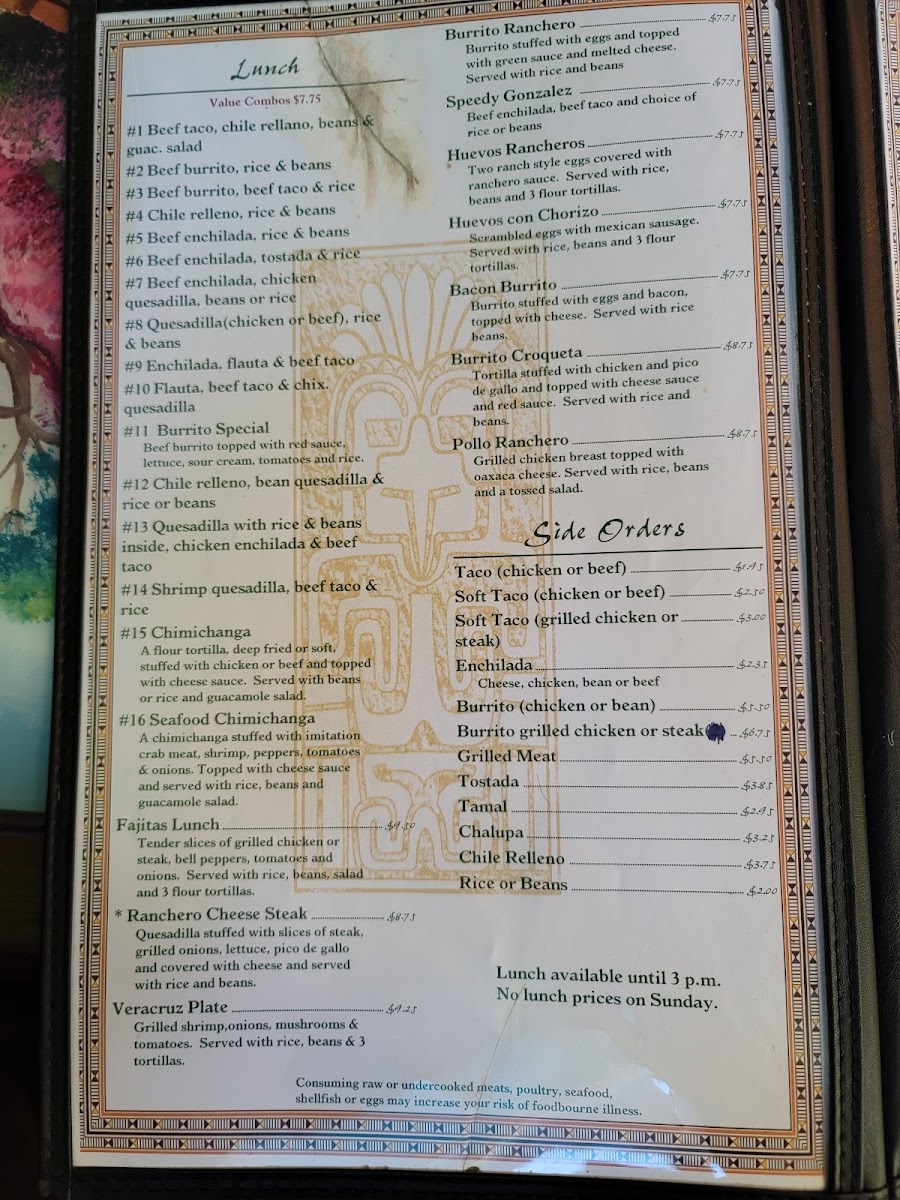 Lunch
Value Combos $7.75
#1 Beef taco, chile rellano, beans &
guac. salad
#2 Beef burrito, rice & beans
#3 Beef burrito, beef taco & rice
#4 Chile relleno, rice & beans
#5 Beef enchilada, rice & beans
#6 Beef enchilada, tostada & rice
#7 Beef enchilada, chicken
quesadilla, beans or rice
#8 Quesadilla(chicken or beef), rice
& beans
#9 Enchilada, flauta & beef taco
#10 Flauta, beef taco & chix.
quesadilla
#11 Burrito Special
Beef burrito topped with red sauce,
lettuce, sour cream, tomatoes and rice.
#12 Chile relleno, bean quesadilla &
rice or beans
#13 Quesadilla with rice & beans
inside, chicken enchilada & beef
taco
#14 Shrimp quesadilla, beef taco &
rice
#15 Chimichanga
A flour tortilla, deep fried or soft,
stuffed with chicken or beef and topped
with cheese sauce. Served with beans
or rice and guacamole salad.
#16 Seafood Chimichanga
A chimichanga stuffed with imitation
crab meat, shrimp, peppers, tomatoes
& onions. Topped with cheese sauce
and served with rice, beans and
guacamole salad.
Fajitas Lunch $9.50
Tender slices of grilled chicken or
steak, bell peppers, tomatoes and
onions. Served with rice, beans, salad
and 3 flour tortillas.
* Ranchero Cheese Steak $8.75
Quesadilla stuffed with slices of steak,
grilled onions, lettuce, pico de gallo
and covered with cheese and served
with rice and beans.
Veracruz Plate $9.25
Grilled shrimp,onions, mushrooms &
tomatoes. Served with rice, beans & 3
tortillas.
Burrito Ranchero $7.75
Burrito stuffed with eggs and topped
with green sauce and melted cheese.
Served with rice and beans
Speedy Gonzalez $7.75
Beef enchilada, beef taco and choice of
rice or beans
Huevos Rancheros $7.75
Two ranch style eggs covered with
ranchero sauce. Served with rice,
beans and 3 flour tortillas.
Huevos con Chorizo $7.75
Scrambled eggs with mexican sausage.
Served with rice, beans and 3 flour
tortillas.
Bacon Burrito $7.75
Burrito stuffed with eggs and bacon,
topped with cheese. Served with rice
beans.
Burrito Croqueta $8.75
Tortilla stuffed with chicken and pico
de gallo and topped with cheese sauce
and red sauce. Served with rice and
beans.
Pollo Ranchero $8.75
Grilled chicken breast topped with
oaxaca cheese. Served with rice, beans
and a tossed salad.
Side Orders
Taco (chicken or beef) $1.95
Soft Taco (chicken or beef) $2.50
Soft Taco (grilled chicken or $3.00
steak)
Enchilada $2.35
Cheese, chicken, bean or beef
Burrito (chicken or bean) $5.50
Burrito grilled chicken or steak $6.75
Grilled Meat $5.50
Tostada $3.85
Tamal $2.95
Chalupa $3.25
Chile Relleno $3.75
Rice or Beans $2.00
Lunch available until 3 p.m.
No lunch prices on Sunday.
Consuming raw or undercooked meats, poultry, seafood,
shellfish or eggs may increase your risk of foodbourne illness.